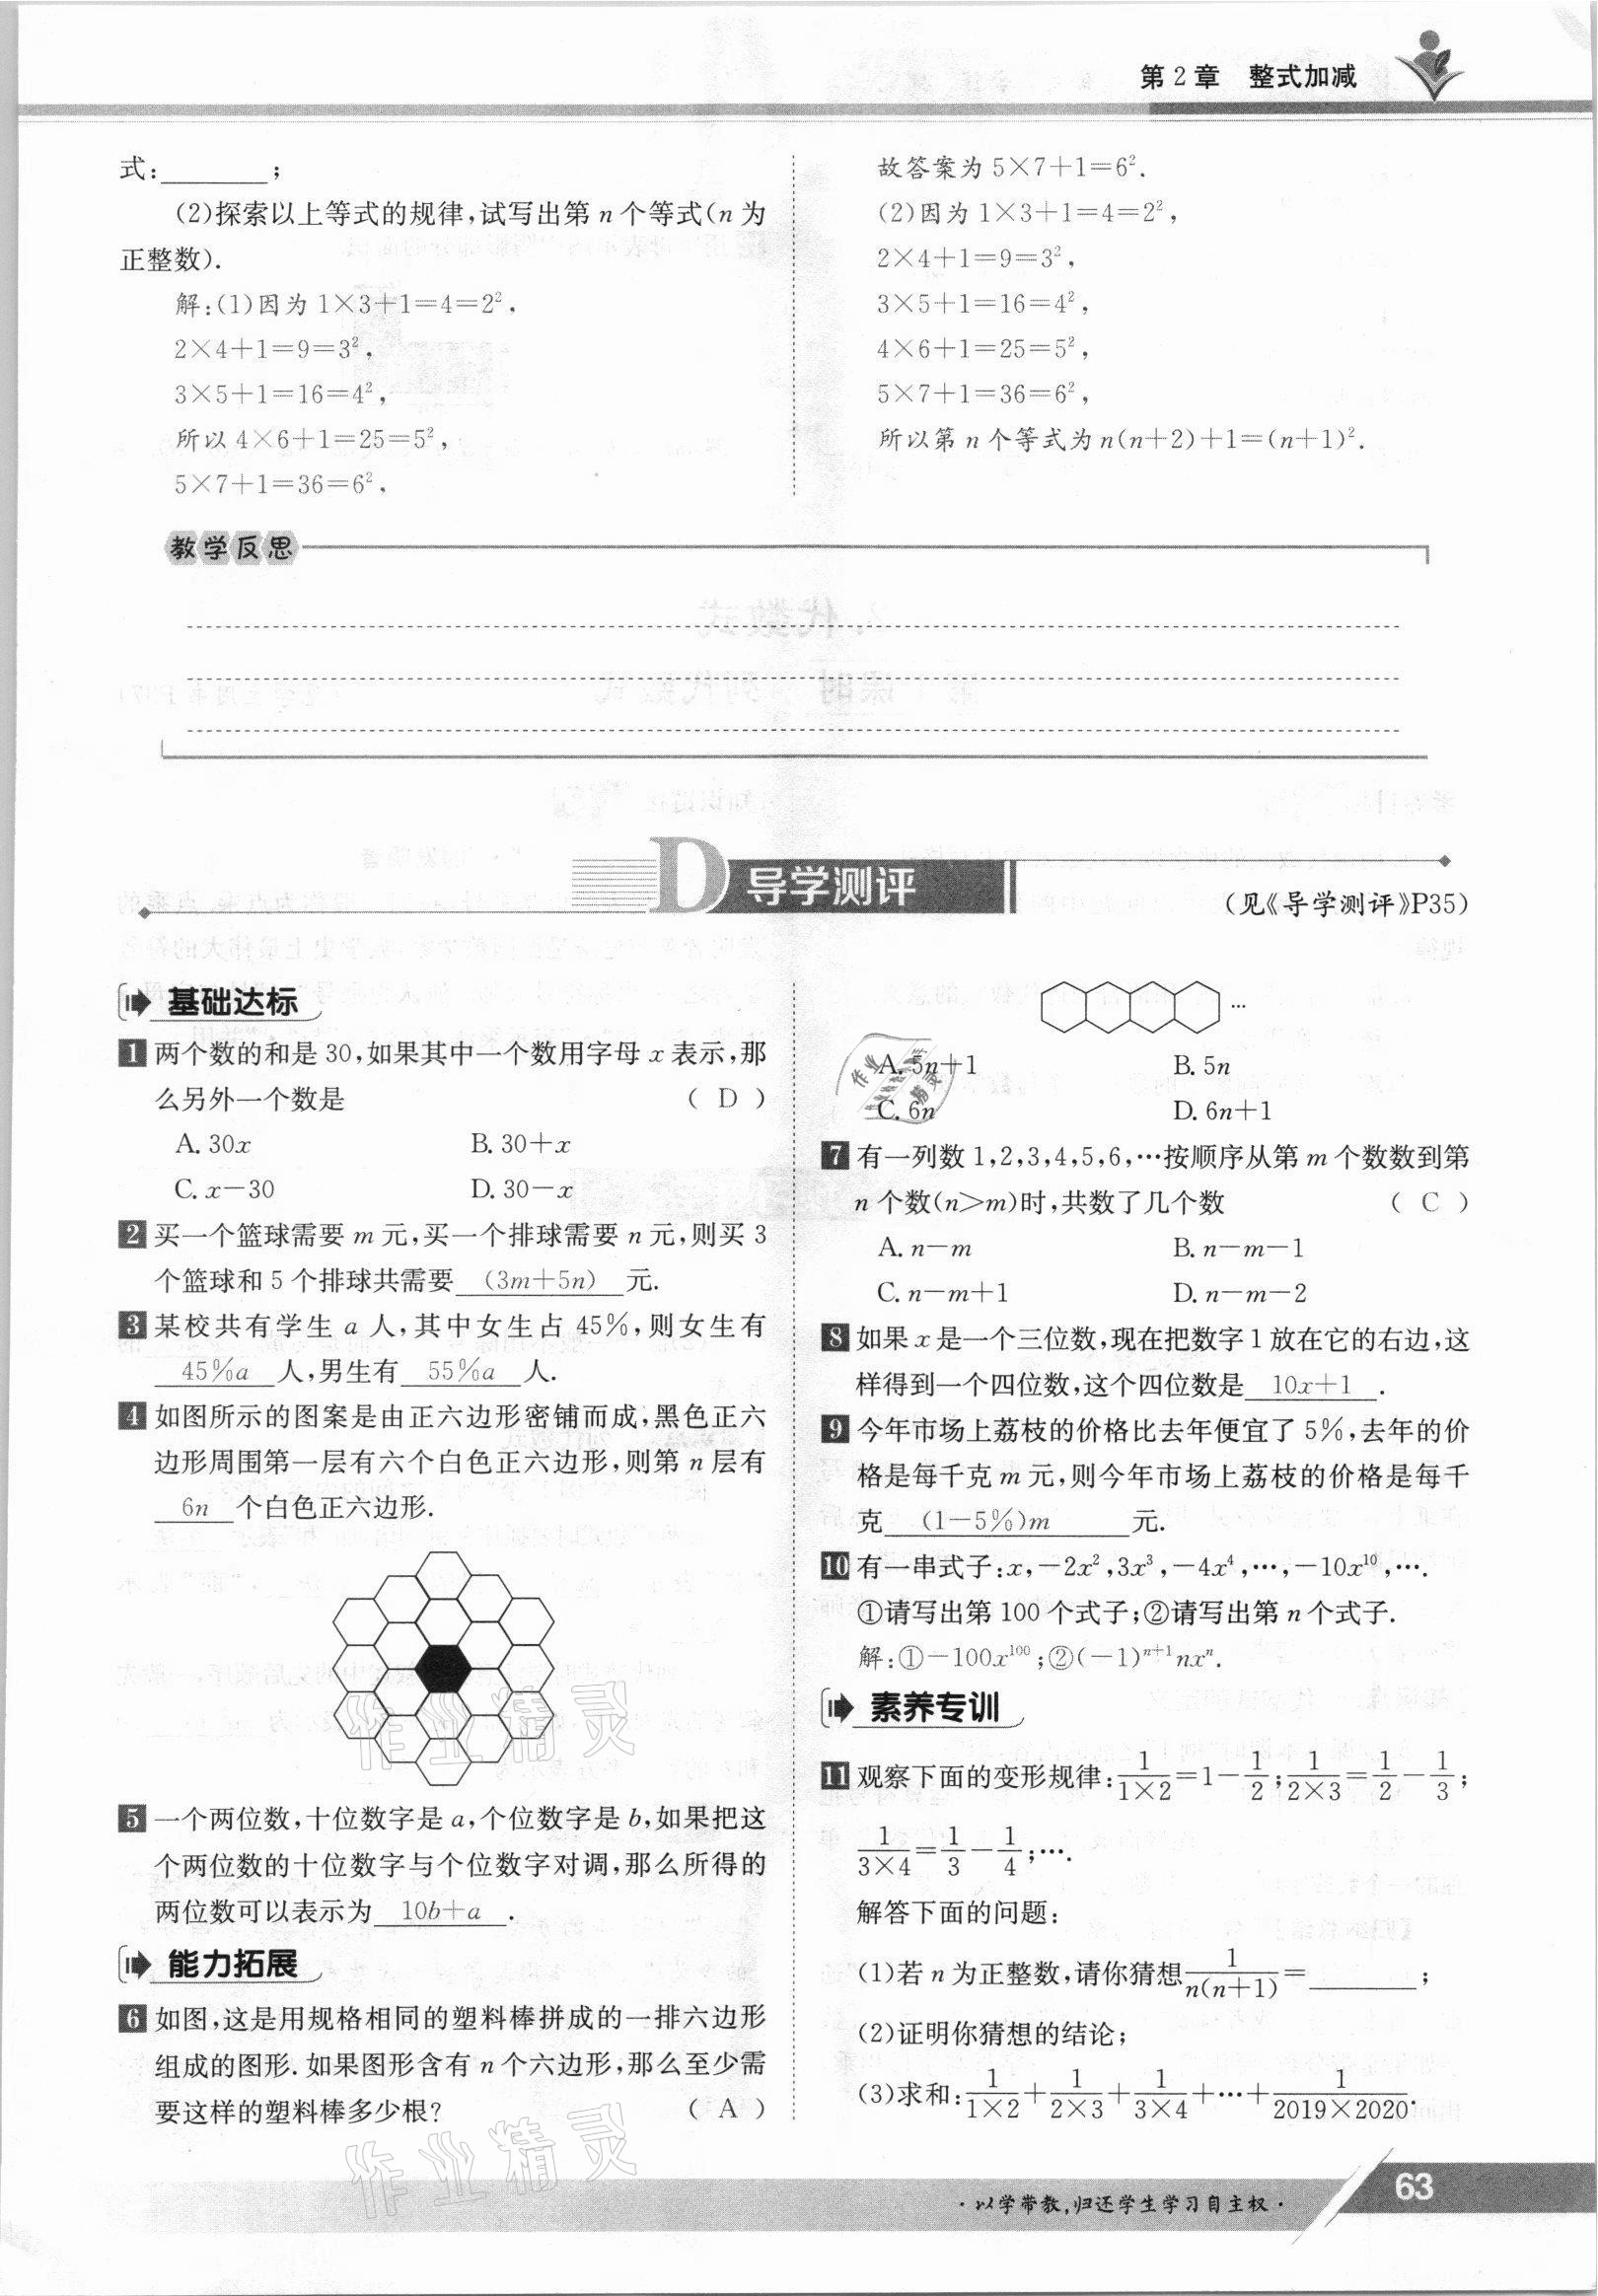 第2章 整式加减
式:________;
(2)探索以上等式的规律,试写出第 n 个等式(n 为
正整数).
解:(1)因为 1×3+1=4=2²,
2×4+1=9=3²,
3×5+1=16=4²,
所以 4×6+1=25=5²,
5×7+1=36=6²,
故答案为 5×7+1=6².
(2)因为 1×3+1=4=2²,
2×4+1=9=3²,
3×5+1=16=4²,
4×6+1=25=5²,
5×7+1=36=6²,
所以第 n 个等式为 n(n+2)+1=(n+1)².
教学反思
D 导学测评
(见《导学测评》P35)
基础达标
1 两个数的和是 30,如果其中一个数用字母 x 表示,那
么另外一个数是 ( D )
A. 30x B. 30+x
C. x-30 D. 30-x
2 买一个篮球需要 m 元,买一个排球需要 n 元,则买 3
个篮球和 5 个排球共需要 (3m+5n) 元.
3 某校共有学生 a 人,其中女生占 45%,则女生有
45%a 人,男生有 55%a 人.
4 如图所示的图案是由正六边形密铺而成,黑色正六
边形周围第一层有六个白色正六边形,则第 n 层有
6n 个白色正六边形.
5 一个两位数,十位数字是 a,个位数字是 b,如果把这
个两位数的十位数字与个位数字对调,那么所得的
两位数可以表示为 10b+a .
能力拓展
6 如图,这是用规格相同的塑料棒拼成的一排六边形
组成的图形. 如果图形含有 n 个六边形,那么至少需
要这样的塑料棒多少根? ( A )
…
A. 5n+1 B. 5n
C. 6n D. 6n+1
7 有一列数 1,2,3,4,5,6,…按顺序从第 m 个数数到第
n 个数(n>m)时,共数了几个数 ( C )
A. n-m B. n-m-1
C. n-m+1 D. n-m-2
8 如果 x 是一个三位数,现在把数字 1 放在它的右边,这
样得到一个四位数,这个四位数是 10x+1 .
9 今年市场上荔枝的价格比去年便宜了 5%,去年的价
格是每千克 m 元,则今年市场上荔枝的价格是每千
克 (1-5%)m 元.
10 有一串式子:x,-2x²,3x³,-4x⁴,…,-10x¹⁰,….
①请写出第 100 个式子;②请写出第 n 个式子.
解:①-100x¹⁰⁰;②(-1)ⁿ⁺¹nxⁿ.
素养专训
11 观察下面的变形规律:1/(1×2)=1-1/2;1/(2×3)=1/2-1/3;
1/(3×4)=1/3-1/4;….
解答下面的问题:
(1)若 n 为正整数,请你猜想 1/(n(n+1))=________;
(2)证明你猜想的结论;
(3)求和:1/(1×2)+1/(2×3)+1/(3×4)+…+1/(2019×2020).
作业精灵
作业精灵
作业精灵
·以学带教,归还学生学习自主权·
63